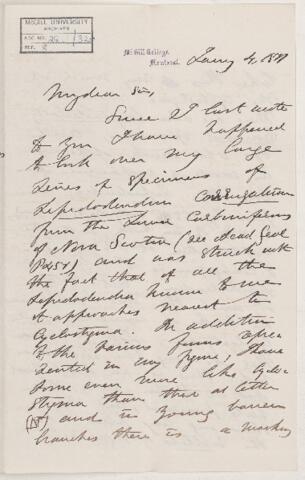 McGILL UNIVERSITY
ARCHIVES
ACC. NO.
REF. 2
McGill College,
Montreal.
Jany 4, 18
My dear Sir,
Since I last wrote
to you I have happened
to look over my large
series of specimens of
Lepidodendron corrugatum
from the Lower Carboniferous
of Nova Scotia (see Acad Geol
P 451) and was struck with
the fact that of all the
Lepidodendra known to me
it approaches nearest to
Cyclostigma. In addition
to the various forms repre
sented in my figures, I have
some even more like Cyclo
stigma than that at letter
(N) and in young barren
branches there is a marking